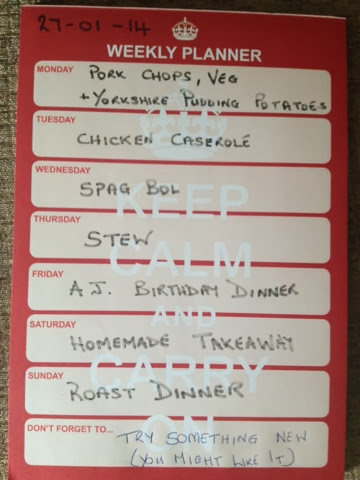 27-01-14
WEEKLY PLANNER
MONDAY
PORK CHOPS, VEG
+ YORKSHIRE PUDDING POTATOES
TUESDAY
CHICKEN CASEROLE
WEDNESDAY
SPAG BOL
THURSDAY
STEW
FRIDAY
A.J. BIRTHDAY DINNER
SATURDAY
HOMEMADE TAKEAWAY
SUNDAY
ROAST DINNER
DON'T FORGET TO...
TRY SOMETHING NEW
(YOU MIGHT LIKE IT)
KEEP
CALM
AND
CARRY
ON